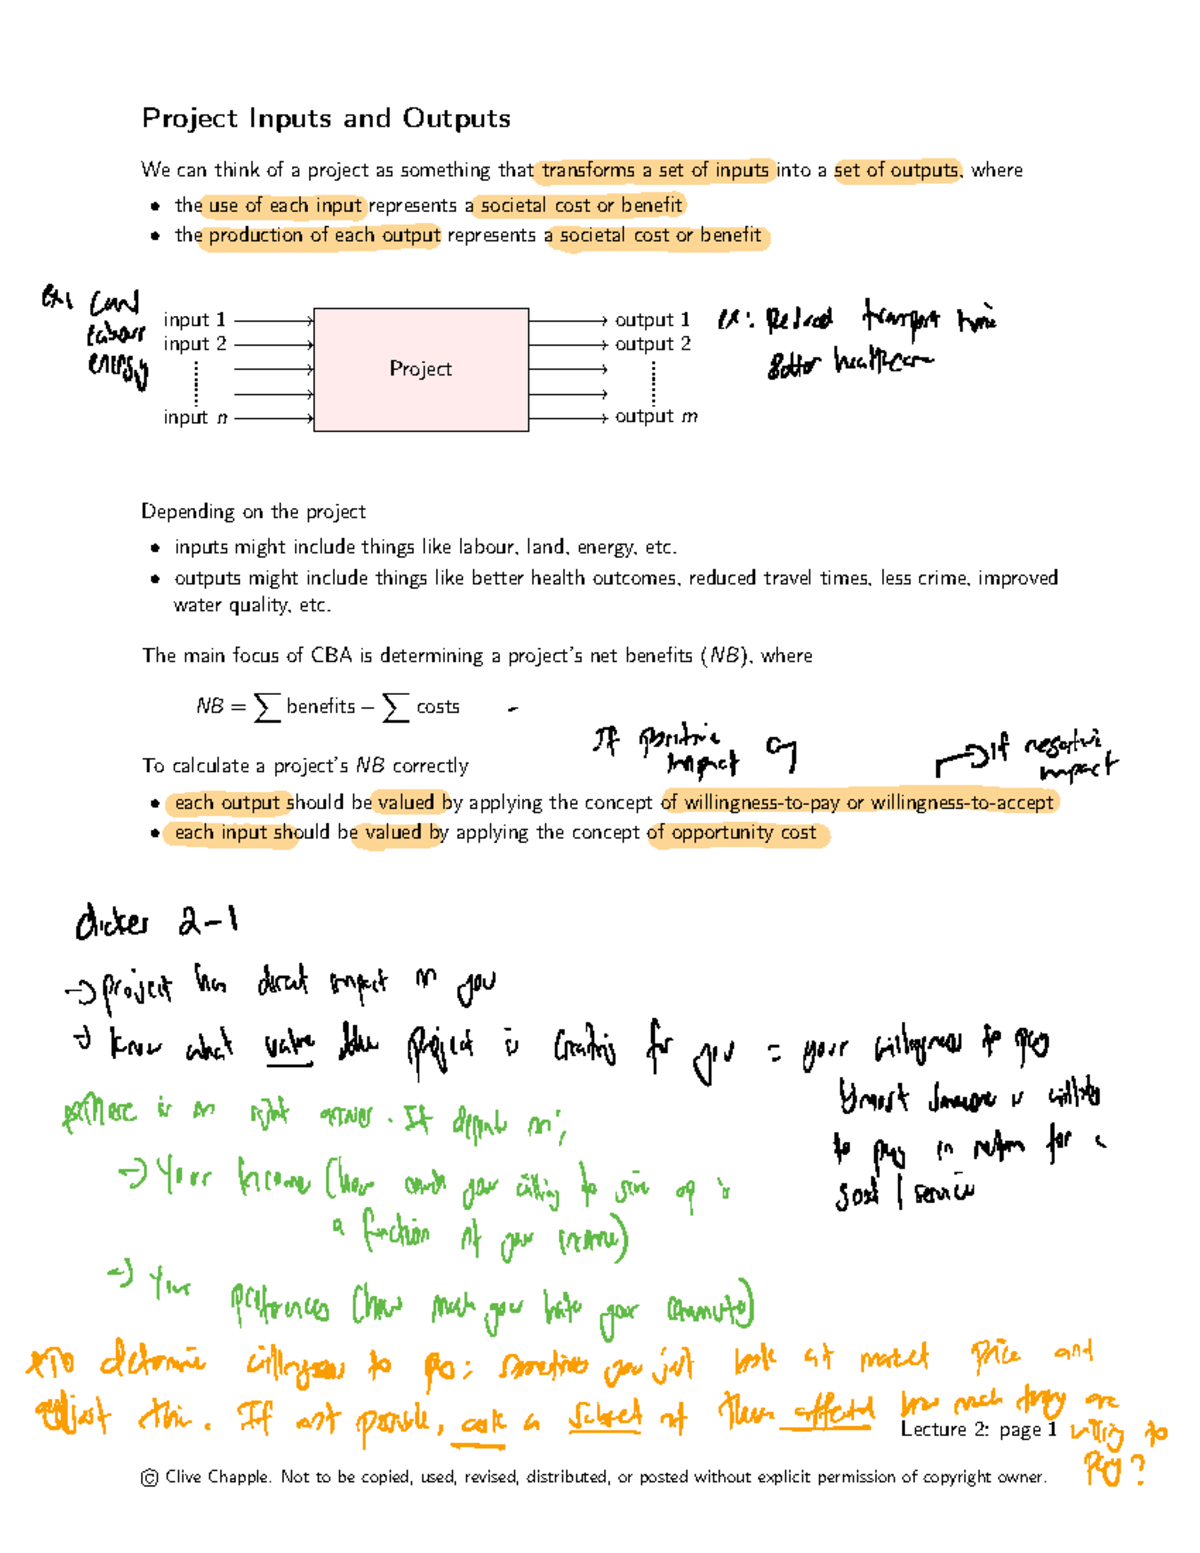 Project Inputs and Outputs
We can think of a project as something that transforms a set of inputs into a set of outputs, where
• the use of each input represents a societal cost or benefit
• the production of each output represents a societal cost or benefit
ex: Land
labour
energy
input 1
input 2
input n
Project
output 1
output 2
output m
ex: Reduced transport time
Better healthcare
Depending on the project
• inputs might include things like labour, land, energy, etc.
• outputs might include things like better health outcomes, reduced travel times, less crime, improved
water quality, etc.
The main focus of CBA is determining a project's net benefits (NB), where
NB = ∑ benefits − ∑ costs
If positive
impact
If negative
impact
To calculate a project's NB correctly
• each output should be valued by applying the concept of willingness-to-pay or willingness-to-accept
• each input should be valued by applying the concept of opportunity cost
clicker 2-1
→ project has direct impact on you
→ know what value the project is creating for you = your willingness to pay
↳ most someone is willing
to pay in return for a
good / service
*There is no right answer. It depends on;
→ Your Income (how much your willing to give up is
a function of your income)
→ Your preferences (how much you hate your commute)
*To determine willingness to pay: sometimes you just look at market price and
adjust this. If not possible, ask a subset of those affected how much they are
willing to
pay?
Lecture 2: page 1
© Clive Chapple. Not to be copied, used, revised, distributed, or posted without explicit permission of copyright owner.